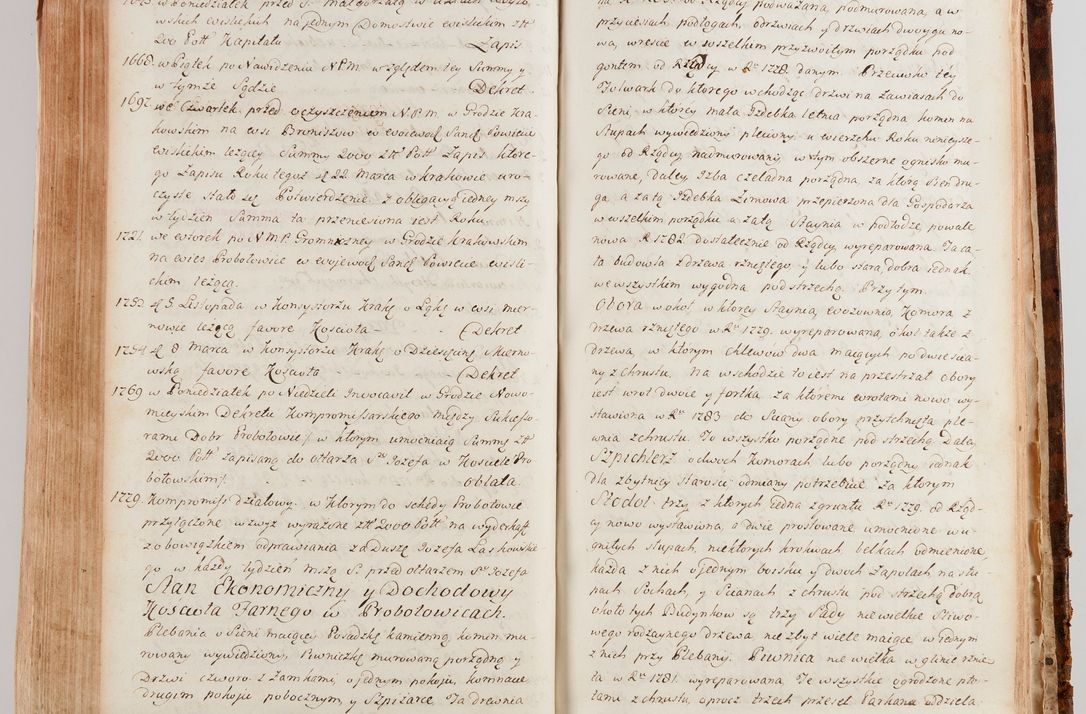 w Poniedziałek przed S. Małgorzatą w
wskich wislickich na jednym Domostwie wislickim złł
200 Poll Kapitału Zapis
1668 w Piątek po Nawidzeniu N.P.M. względem tey Summy y
w Tymże Sądzie Dekret
1697. we Czwartek przed oczyszczeniem N.P.M. w Grodzie Kra-
kowskim na wsi Broniszow w woiewod Send Powiecie
wislickim leżącey Summy 2000 złł Poll Zapis które-
go Zapisu Roku tegoż d 22 Marca w krakowie uro-
czyste stało się Potwierdzenie z obligacyą jedney mszy
w tydzien Summa ta przeniesiona jest Roku
1721 we wtorek po N.M.P. Gromniczney w Grodzie krakowskim
na wies Probołowice w woiewod Send Powiecie wisli-
ckim leżącą.
1752 d 3 Listopada w Konsystorzu Krakq o Łąkę w wsi mier-
nowie leżącą favore Kosciola Dekret
1754 d 8 Marca w Konsystorzu Krakq o Dziesięcinę Skierno-
wską favore Kosciola Dekret
1769 w Poniedziałek po Niedzieli Invocavit w Grodzie Nowo-
mieyskim Dekretu Kompromissarskiego między Sukcesso-
rami Dobr Probołowic/: w ktorym umocniaią Summę złł
2000 Poll zapisaną do ołtarza Sgo Jozefa w Kosciele Pro
bołowskim/. oblata
1779. Kompromiss działowy, w ktorym do schedy Probołowic
przyłączone wzwyż wyrażone złł 2000 Poll na wyderkaf
z obowiązkiem odprawiania za Duszę Jozefa Laskowskie
go w każdy tydzien mszą S. przed ołtarzem Sgo Jozefa
Stan Ekonomiczny y Dochodowy
Kosciola Farnego w Probołowicach.
Plebania o Sieni maiącey Posadzkę kamienną, komin mu-
rowany wywiedziony, Piwniczkę murowaną porządną y
Drzwi czworo z Zamkami, o jednym pokoju, kominacie
drugim pokoju pobocznym, y Szpiżarce. Ta drewnia
na od Rządcy podważana, podmurowana, a w
przyciesiach, podłogach, odrzwiach y drzwiach dwoyga no-
wa, wreście w wszelkim przyzwoitym porządku pod
gontem od Rządcy w Ru 1778. danym. Przeciwko tey
Folwark do ktorego wchodząc drzwi na zawiasach do
Sieni w ktorey mała Izdebka letnia porządna, komin na
Słupach wywiedziony pleciony, u wierzchu Roku ninieysze-
go od Rządcy nadmurowany, w tym obszerne ognisko mu-
rowane, daley Izba czeladna porządna, za ktorą Sien dru-
ga, a za tą Izdebka Zimowa przepierzona dla Gospodarza
w wszelkim porządku a za tą Staynia w podłodze, powale
nowa R 1782 Dostatecznie od Rządcy wyreparowana. Ta ca-
ła budowla z drzewa rzniętego y lubo stara, dobra jednak
we wszystkim wygodna pod strzechą. Przy tym
Obora w około, w ktorey Staynia, wozownia, Komora z
drzewa rzniętego w Ru 1779. wyreparowana, okoł także z
drzewa, w ktorym chlewow dwa maiących po dwie scia-
ny z chrustu. Na wschodzie to iest na przestrzał obory
iest wrot dwoie y fortka, za ktoremi wrotami nowo wy-
stawiona w Ru 1783 do Sciany obory przytchnięta ple-
wnia z chrustu. To wszystko porządne pod strzechą. Daley
Szpichlerz o dwoch Komorach lubo porządny jednak
dla zbytney starosci odmiany potrzebuie za ktorym
Stodoł trzy z ktorych jedna z gruntu Ru 1779. od Rząd-
cy nowo wystawiona, a dwie prostowane umocnione w u-
gniłych słupach, niektorych krokwach, belkach odmienione,
każda z nich o jednym boisku y dwoch Zapołach, na słu-
pach, Sochach, y Scianach z chrustu pod strzechą dobrą
około tych Budynkow są trzy Sady nie wielkie Sliwo-
wego rodzaynego drzewa nie zbyt wiele maiące, w jednym
z nich przy Plebanij. Piwnica nie wielka w glinie rznię-
ta w Ru 1781. wyreparowana. Te wszystkie ogrodzone pło-
tami z chrustu, oprocz trzech przęseł Parkana oddziela-